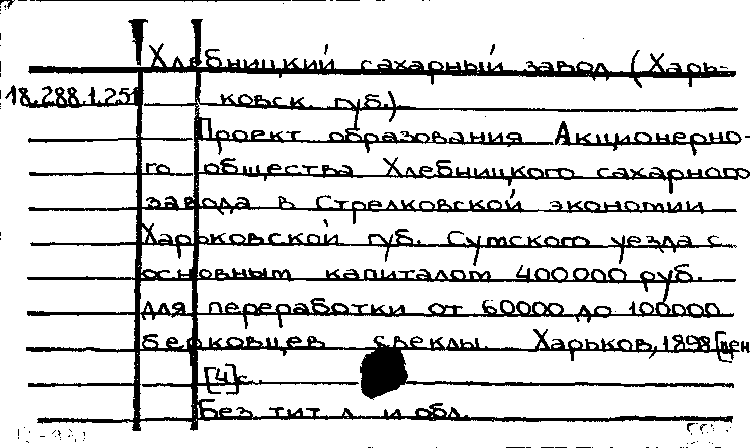 Хлебницкий сахарный завод (Харь-
18.288.1.251 ковск. губ.)
Проект образования Акционерно-
го общества Хлебницкого сахарного
завода в Стрелковской экономии
Харьковской губ. Сумского уезда с
основным капиталом 400000 руб.
для переработки от 60000 до 100000
берковцев свеклы. Харьков, 1898 [цен
[4]с.
Без тит. л. и обл.